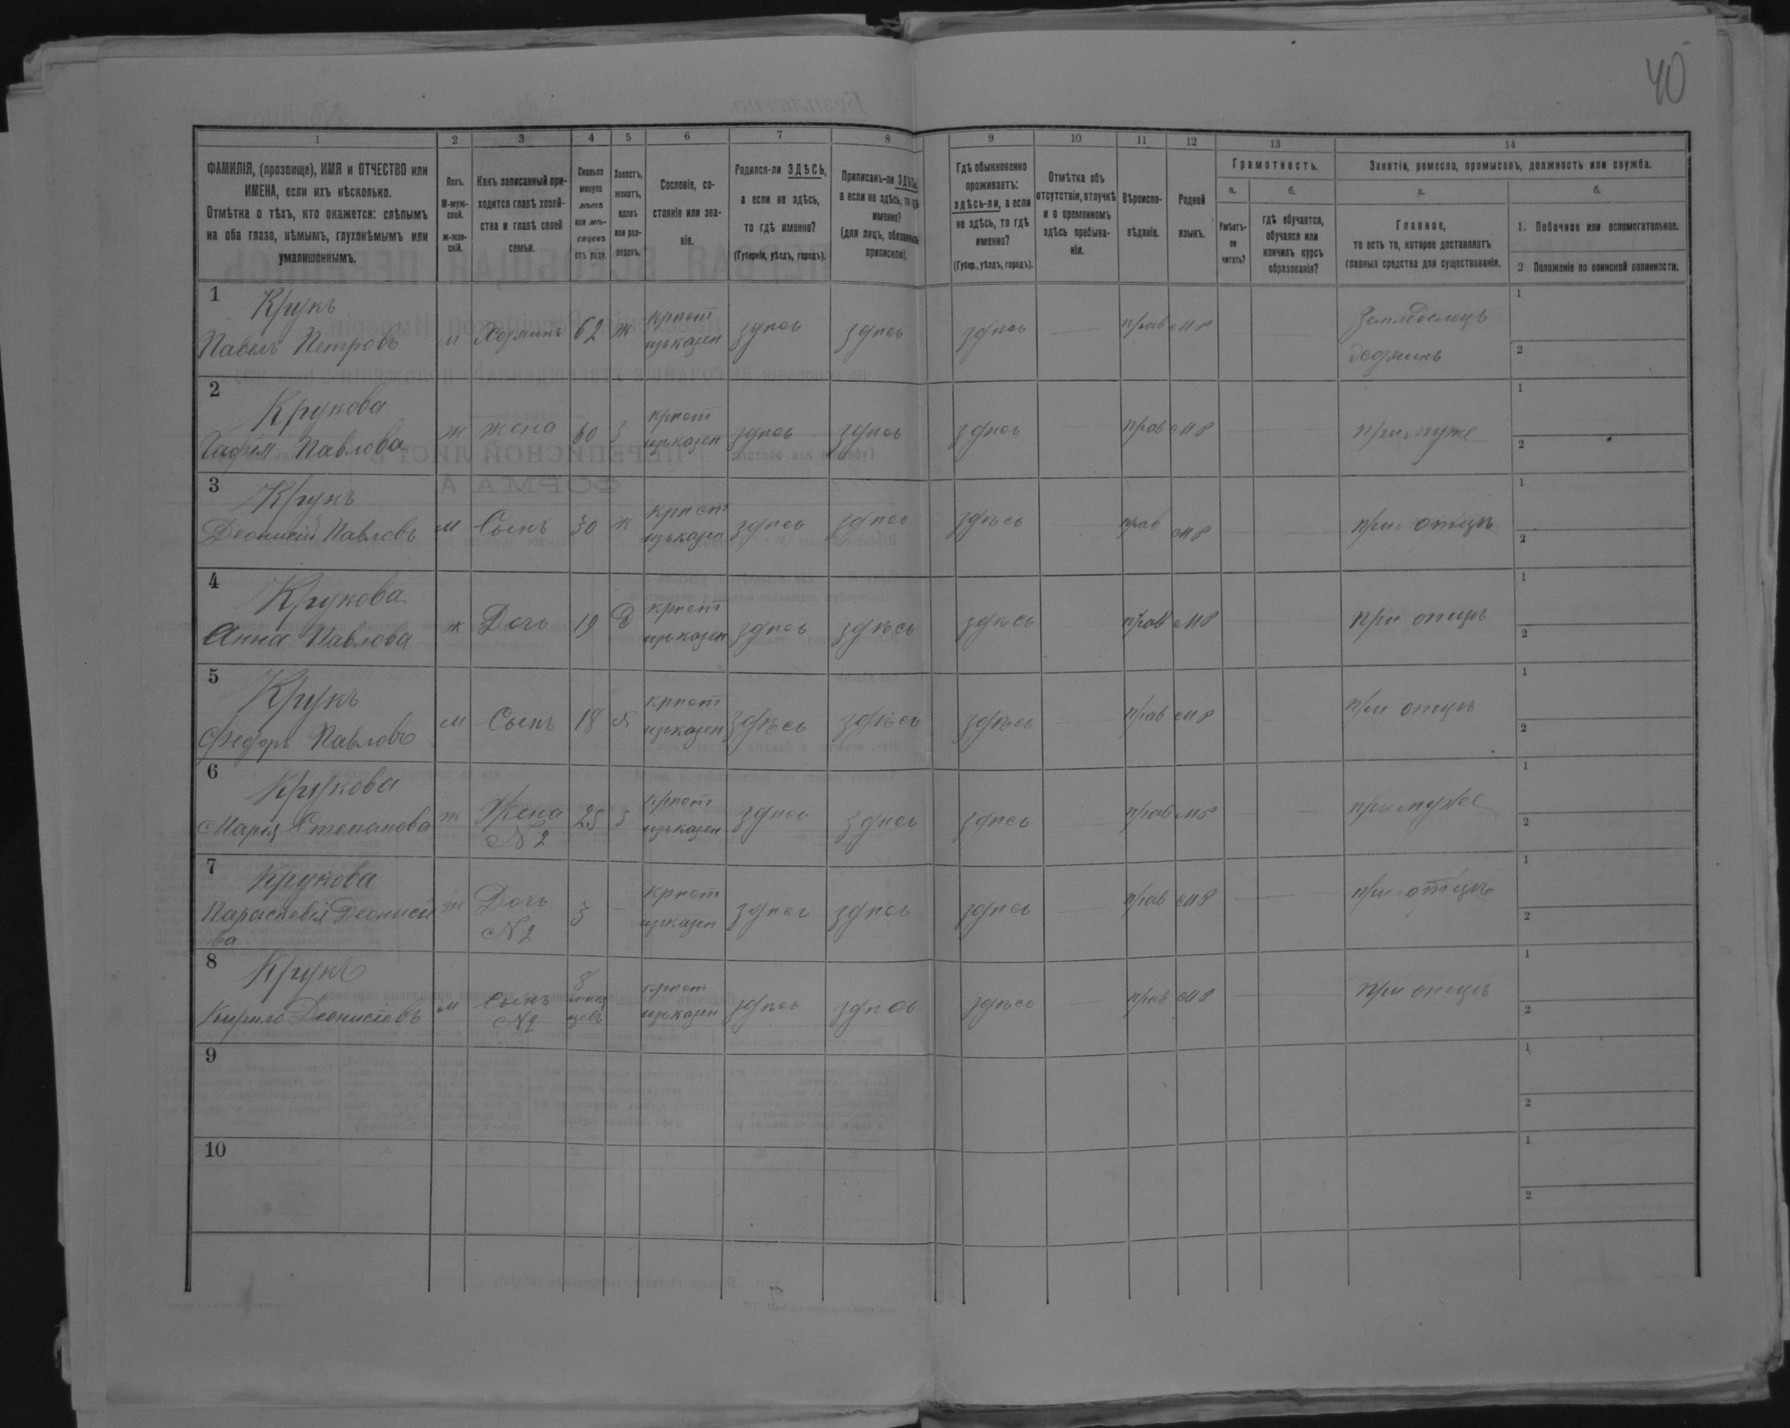 40
1 2 3 4 5 6 7 8 9 10 11 12 13 14
ФАМИЛІЯ, (прозвище), ИМЯ и ОТЧЕСТВО или
ИМЕНА, если ихъ нѣсколько.
Отмѣтка о тѣхъ, кто окажется: слѣпымъ
на оба глаза, нѣмымъ, глухонѣмымъ или
умалишеннымъ.
Полъ.
М-муж-
ской.
ж-жен-
скій.
Какъ записанный при-
ходится главѣ хозяй-
ства и главѣ своей
семьи.
Сколько
минуло
лѣтъ
или мѣ-
сяцевъ
отъ роду.
Холостъ,
женатъ,
вдовъ
или раз-
веденъ.
Сословіе, со-
стояніе или зва-
ніе.
Родился-ли ЗДѢСЬ,
а если не здѣсь,
то гдѣ именно?
(Губернія, уѣздъ, городъ).
Приписанъ-ли ЗДѢСЬ,
а если не здѣсь, то гдѣ
именно?
(для лицъ, обязанныхъ
припиской).
Гдѣ обыкновенно
проживаетъ:
здѣсь-ли, а если
не здѣсь, то гдѣ
именно?
(Губер., уѣздъ, городъ).
Отмѣтка объ
отсутствіи, отлучкѣ
и о временномъ
здѣсь пребыва-
ніи.
Вѣроиспо-
вѣданіе.
Родной
языкъ.
Грамотность.
а.
Умѣетъ-
ли
читать?
б.
гдѣ обучается,
обучался или
кончилъ курсъ
образованія?
Занятія, ремесло, промыселъ, должность или служба.
а.
Главное,
то есть то, которое доставляетъ
главныя средства для существованія.
б.
1. Побочное или вспомогательное.
2 Положеніе по воинской повинности.
1 Крукъ
Павелъ Петровъ м Хозяинъ 62 ж крест изъ казен здѣсь здѣсь здѣсь — прав мр Земледелецъ хозяинъ 1 2
2 Крукова
Павлова ж жена 60 з крест изъ казен здѣсь здѣсь здѣсь прав мр при муже 1 2
3 Крукъ
Деонисій Павловъ м Сынъ 30 ж крест изъ казен здѣсь здѣсь здѣсь прав мр при отцѣ 1 2
4 Крукова
Анна Павлова ж Дочь 19 д крест изъ казен здѣсь здѣсь здѣсь прав мр при отцѣ 1 2
5 Крукъ
Федоръ Павловъ м Сынъ 18 х крест изъ казен здѣсь здѣсь здѣсь прав мр при отцѣ 1 2
6 Крукова
Марія Степанова ж Жена N2 25 з крест изъ казен здѣсь здѣсь здѣсь прав мр при муже 1 2
7 Крукова
Параскевія Деонисі
ва ж Дочь N2 3 — крест изъ казен здѣсь здѣсь здѣсь — прав мр при отцѣ 1 2
8 Крукъ
Кирило Деонисіевъ м сынъ N2 8 месяцевъ крест изъ казен здѣсь здѣсь здѣсь — прав мр при отцѣ 1 2
9 1 2
10 1 2